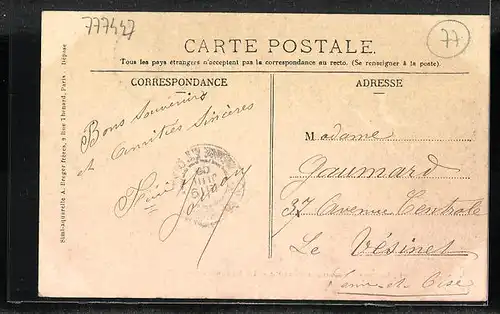 777427
77
CARTE POSTALE.
Tous les pays étrangers n'acceptent pas la correspondance au recto. (Se renseigner à la poste).
CORRESPONDANCE
ADRESSE
Simili-aquarelle A. Breger frères, 9 Rue Thénard, Paris - Déposé
Bons souvenirs
et amitiés sincères
Madame
Gaumard
37 Avenue Centrale
Le Vésinet
Seine et Oise